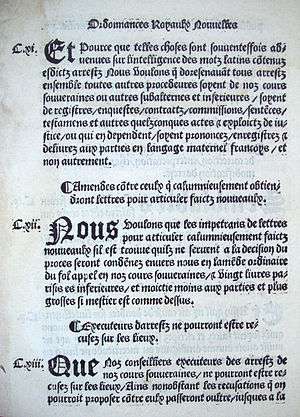 Ordonnances Royaulx Nouvelles
C.xi. Et Pource que telles choses sont souuenteffois ad-
uenues sur lintelligence des motz latins cõtenuz
esdictz arrestz Nous voulons q̃ doresenauãt tous arrestz
ensemble toutes autres procedures soyent de noz cours
souueraines ou autres subalternes et inferieures / soyent
de registres / enquestes / contratz / commissions / sentẽces /
testamens et autres quelzconques actes ⁊ exploictz de iu-
stice / ou qui en dependent / soyent prononcez / enregistrez ⁊
deliurez aux parties en langage maternel francoys / et
non autrement.
¶ Amendes cõtre ceulx q̃ calumnieusement obtien-
dront lettres pour articuler faictz nouueaulx.
C.xii. Nous Voulons que les impetrans de lettres
pour articuler calumnieusement faictz
nouueaulx sil est trouue quilz ne seruent a la decision du
proces seront condẽnez enuers nous en lamẽde ordinaire
du fol appel en noz cours souueraines / ⁊ vingt liures pa-
risis es inferieures / et moictie moins aux parties et plus
grosses si mestier est comme dessus.
¶ Executeurs darrestz ne pourront estre re-
cusez sur les lieux.
C.xiii. Que Noz conseilliers executeurs des arrestz de
noz cours souueraines / ne pourront estre re-
cusez sur les lieux / Ains nonobstant les recusations q̃ on
pourroit proposer cõtre eulx passeront oultre / iusques a la